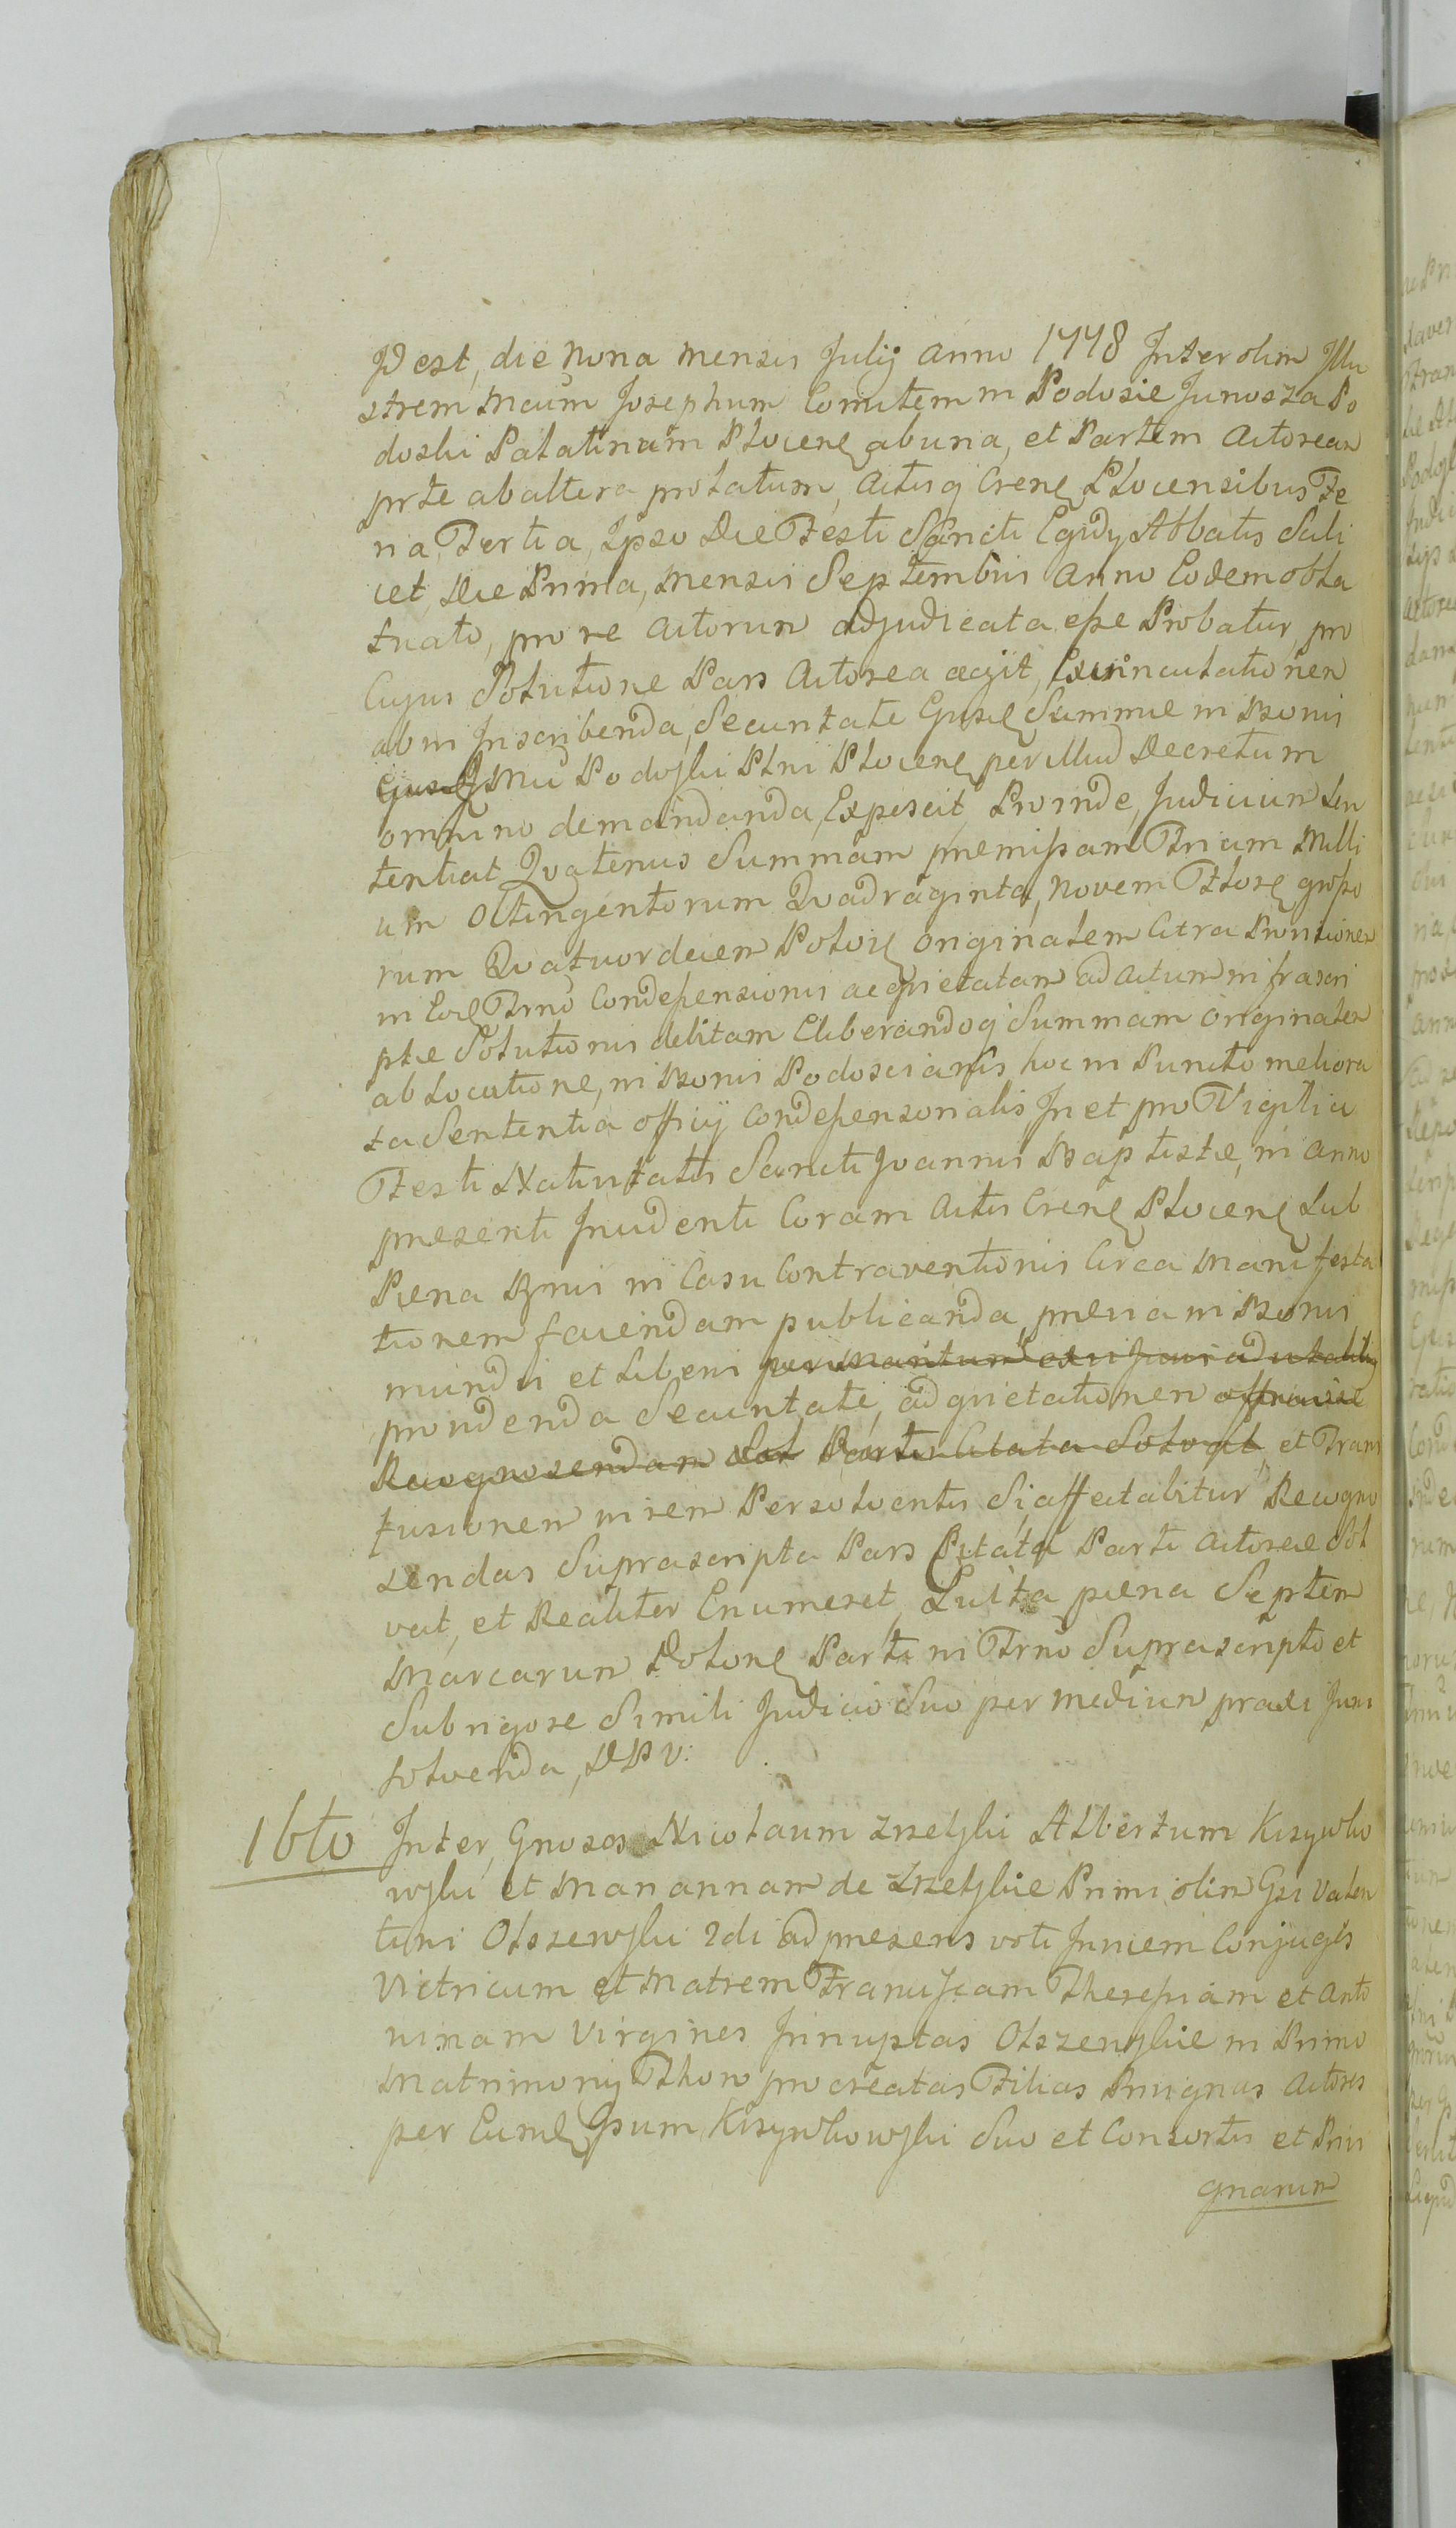 Id est, die Nona mensis Julij anno 1778 Inter olim Illu
strem Mcum Josephum Comitem in Podosie Junosza Po
doski Palatinum Plocens ab una, et Partem Actoream
prte ab altera prolatum, Actisq Crens Plocensibus Fe
ria Tertia, Ipso Die Festi Sancti Egidy Abbatis Scili
cet Die Prima, Mensis Septembris Anno Eodem obla
tuato, pro re Actorum adjudicata esse Probatur, pro
Cujus Solutione Pars Actorea aegit,
ab in Inscribenda Securitate Ejusd Summae in Bonis
Ejusd Jmci Podoski Plni Plocens per illud Decretum
omnino demandanda, Exposcit, Proinde, Judicium Sen
tentiat Quatenus Summam praemissam Trium Milli
um Octingentorum Quadraginta, Novem Flors grosso
rum Quatuordecem Polon originalem Citra Provisionem
in Eod Trno Condescensionis acquietatam ad Actum infrascri
ptae Solutionis debitam Eliberandoq Summam originalem
ab Locatione, in Bonis Podoscianis hoc in Puncto meliora
ta Sententia officij Condescensorialis In et pro Vigilia
Festi Nativitatis Sancti Joannis Baptistae, in Anno
praesenti Incidenti Coram Actis Crens Plocens Sub
Paena Bnis in Casu Contraventionis Circa Manifesta
tionem faciendam publicanda, praevia in Bonis
mundis et Liberis
providenda Securitate, ad quietationem
Recognoscendam Parti Citata Solvat, et Trans
fusionem in rem Persolventis Si affectabitur Recogno
scendas Suprascripta Pars Citata Parti Actoreae Sol
vat, et Realiter Enumeret, Luita paena Septem
Marcarum Polons Parti in Trno Suprascripto et
Sub rigore Simili Judicio Suo per medium praevi Juris
solvenda, DPV:
16to Inter, Gnosos Nicolaum Albertum
et Mariannam de Primi olim Gsi Valen
tini Olszewski 2di ad praesens voti Invicem Conjuges
Vitricum et Matrem Franciscam Theresiam et Anto
ninam Virgines Innuptas Olszewskie in Primo
Matrimonij Thoro procreatas Filias Privignas Actores
per Eumd Gsum Suo et Consortis et Privi
gnarum